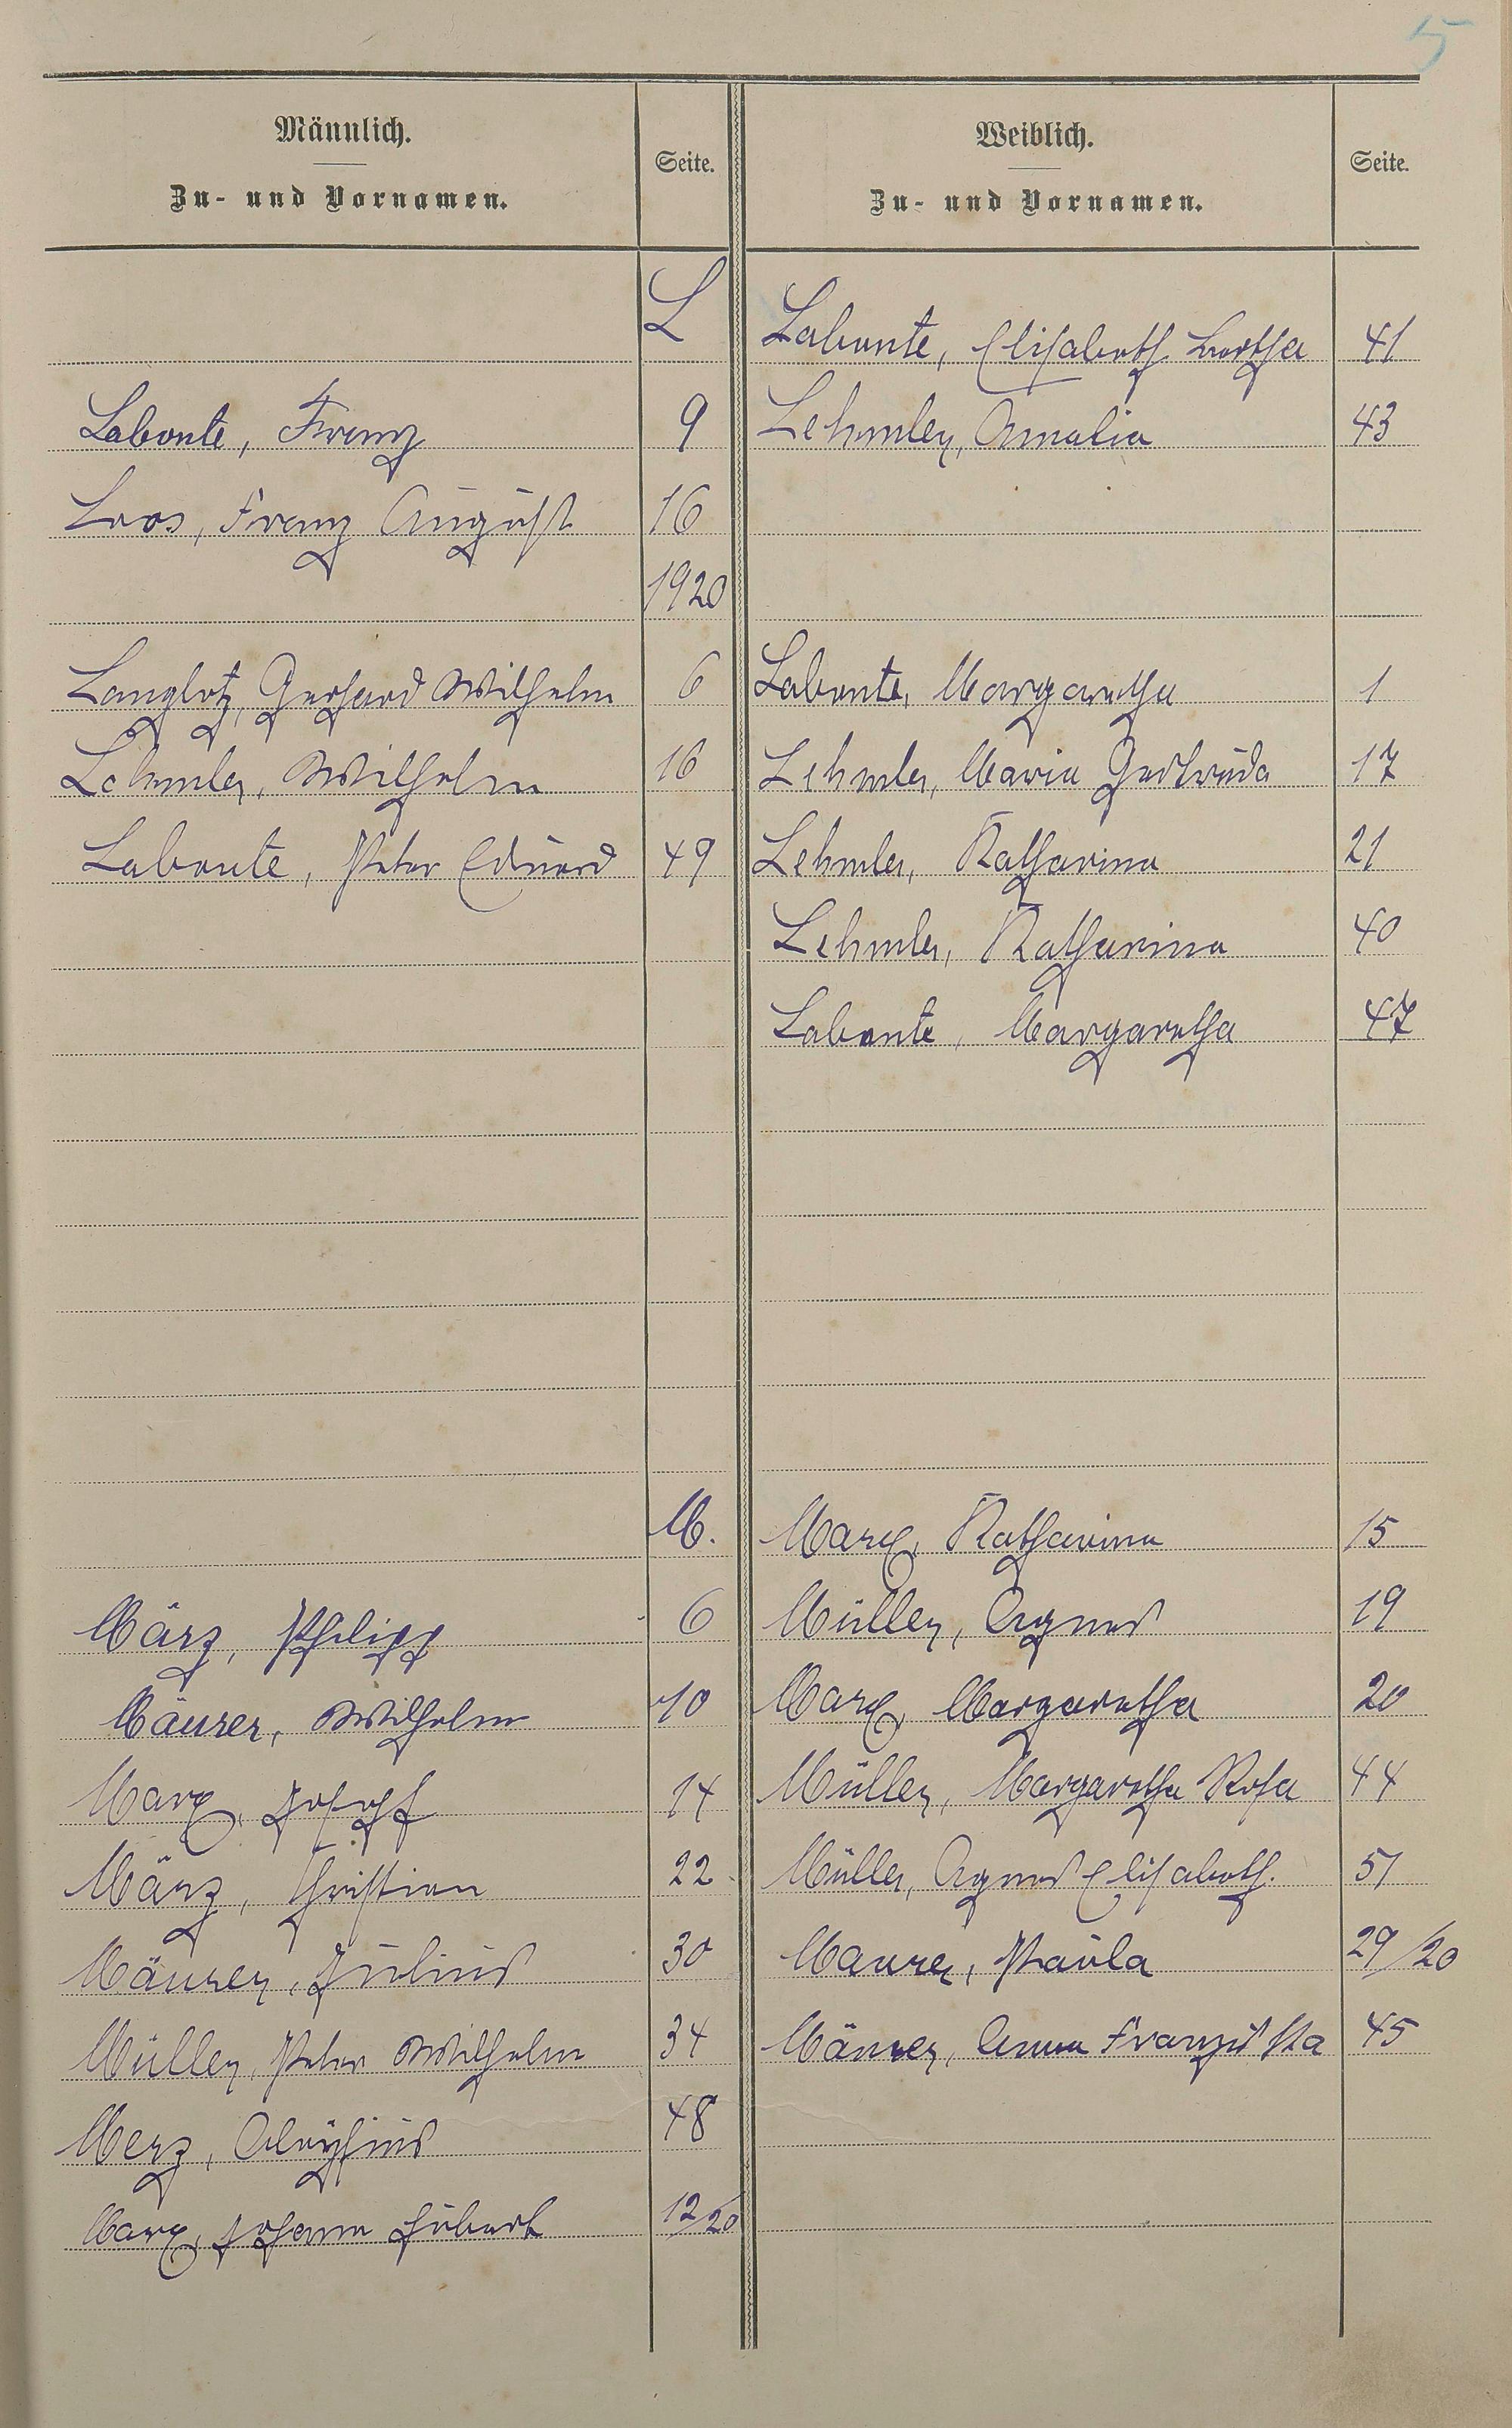 5
Männlich.
Zu- und Vornamen.
Seite.
Weiblich.
Zu- und Vornamen.
Seite.
L
Labonte, Elisabeth Bertha 41
Labonte, Franz 9
Lehmler, Amalia 43
Loos, Franz August 16
1920
Langlotz, Gerhard Wilhelm 6
Labonte, Margaretha 1
Lehmler, Wilhelm 16
Lehmler, Maria Gertruda 17
Labonte, Peter Eduard 49
Lehmler, Katharina 21
Lehmler, Katharina 40
Labonte, Margaretha 47
M.
Marx, Katharina 15
März, Philipp 6
Müller, Agnes 19
Mäurer, Wilhelm 10
Marx, Margaretha 20
Marx, Joseph 14
Müller, Margaretha Rosa 44
März, Christian 22
Müller, Agnes Elisabeth. 51
Mäurer, Julius 30
Maurer, Paula 29/20
Müller, Peter Wilhelm 34
Mäurer, Anna Franziska 45
Merz, Aloysius 48
Marx, Johann Hubert 12/20